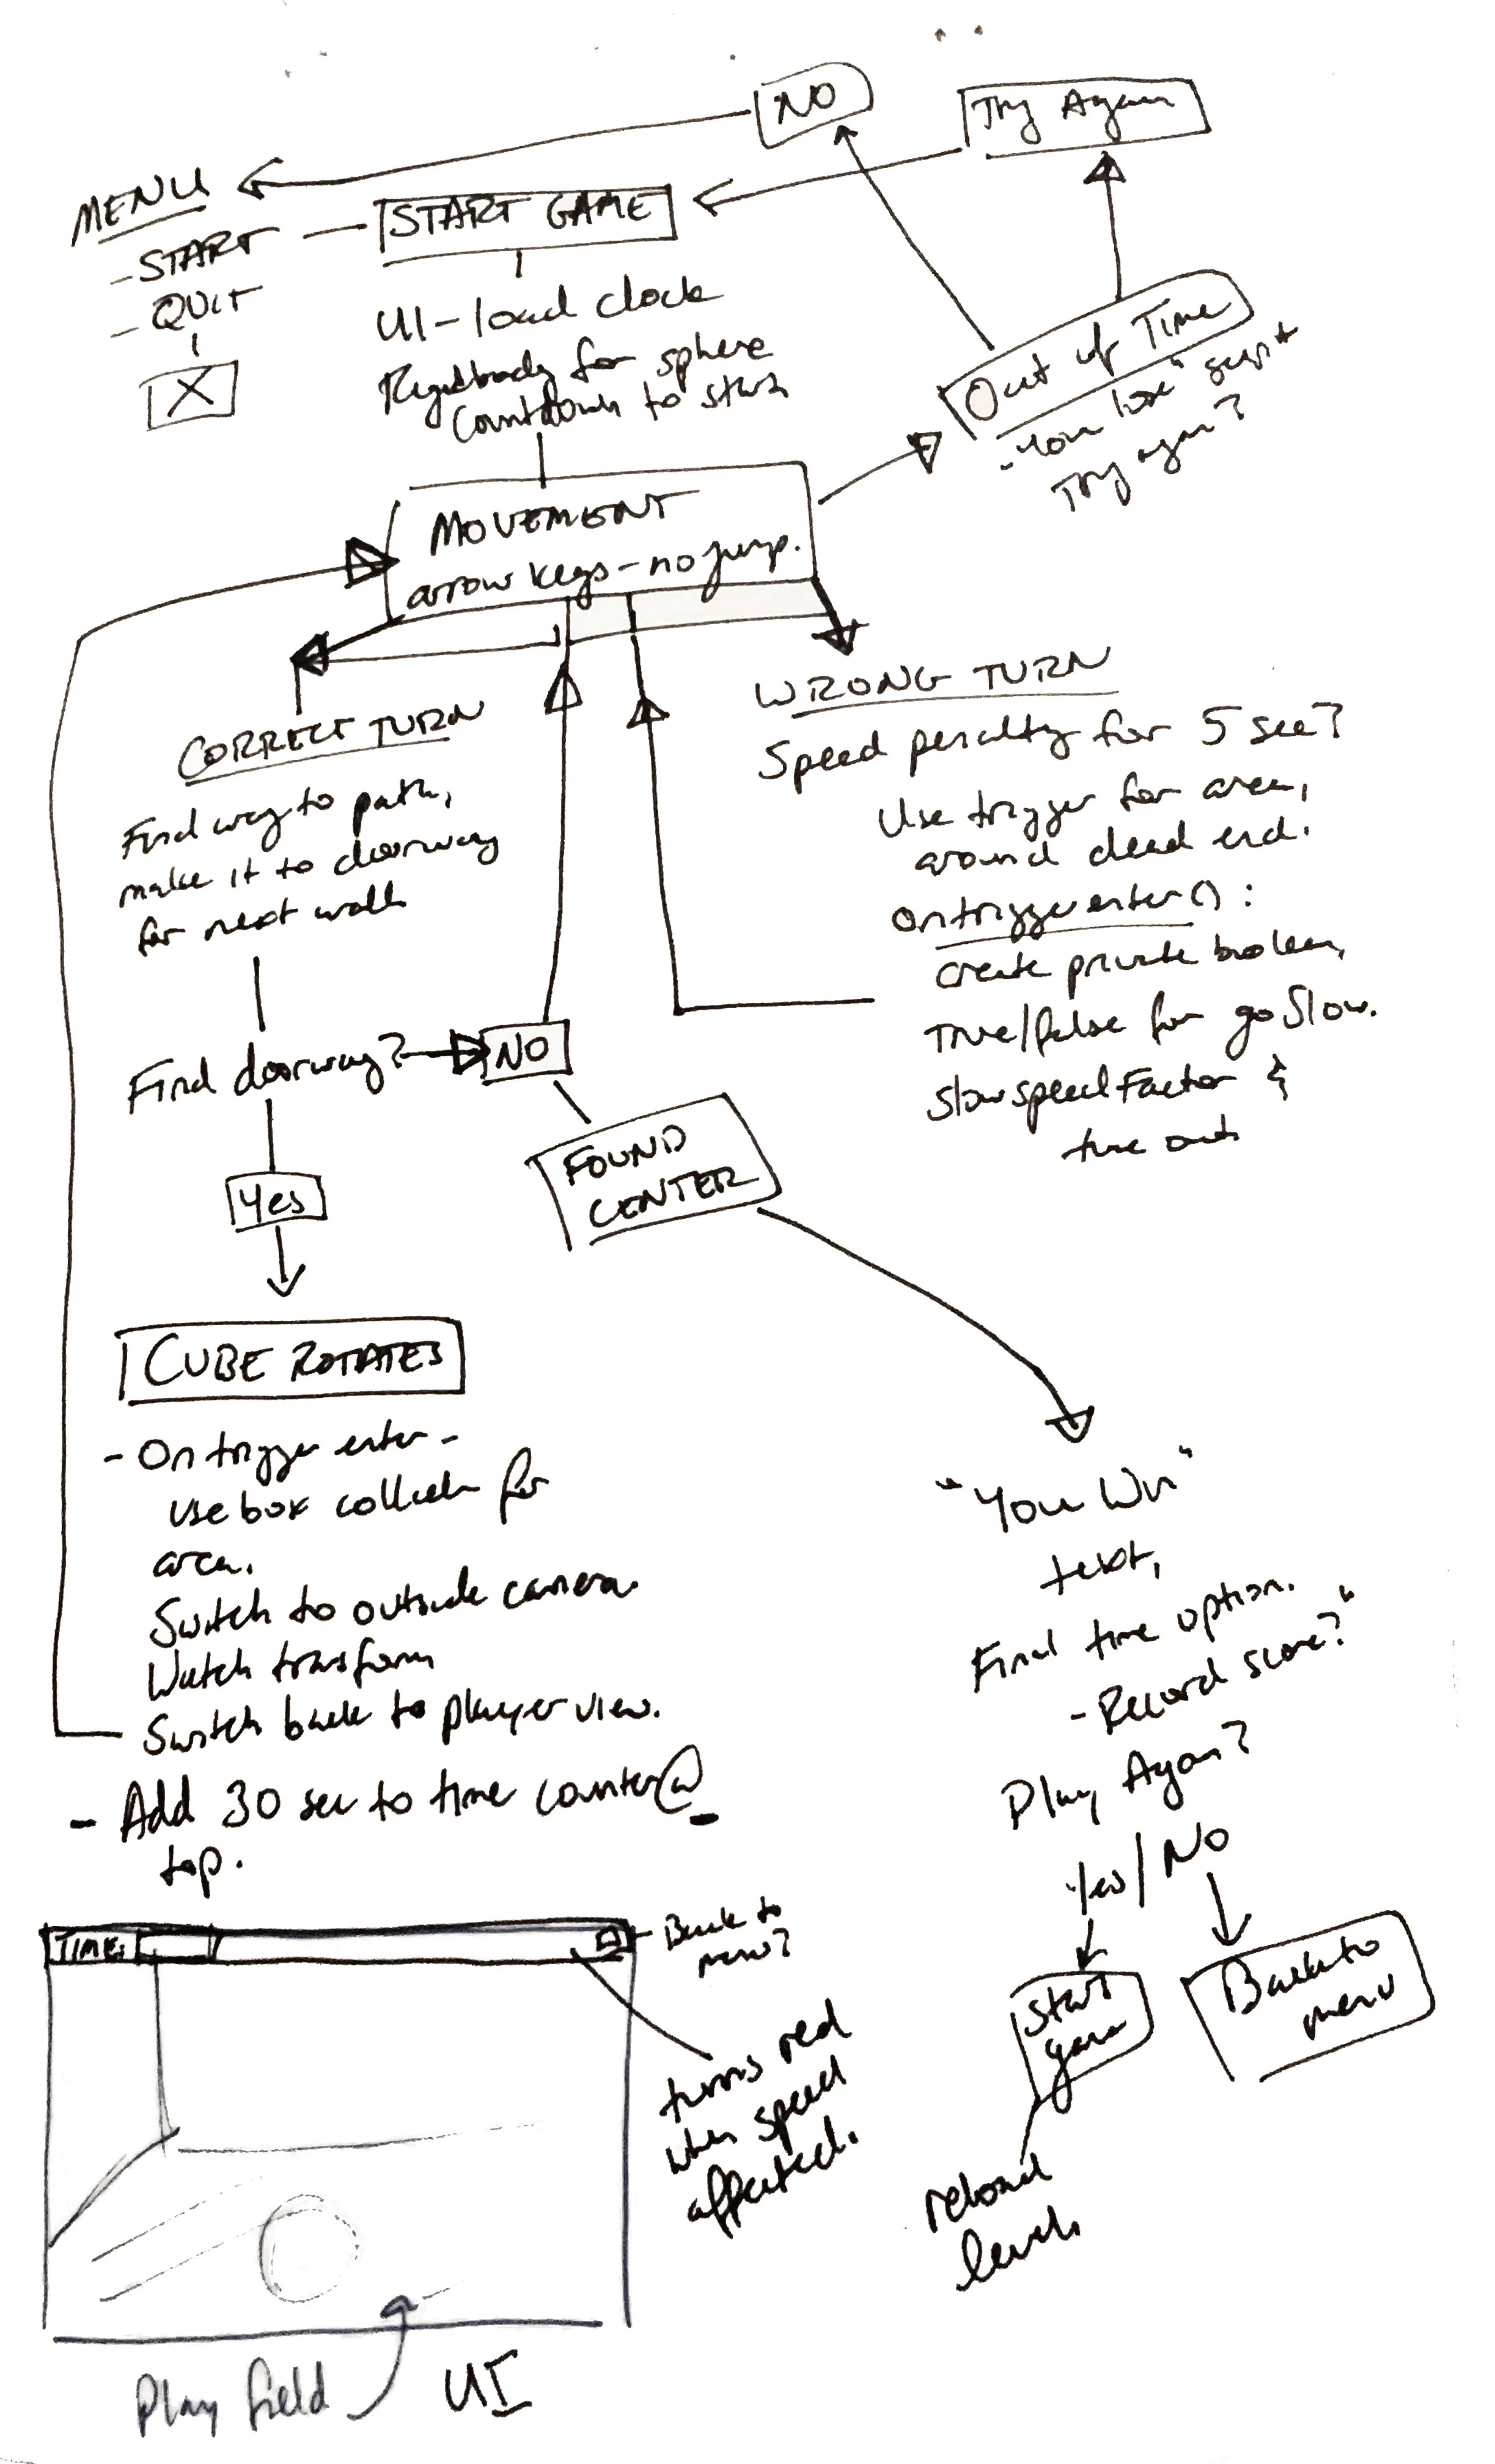 NO
Try Again
MENU
- START
- QUIT
X
START GAME
UI - load clock
Rigidbody for sphere
Countdown to start
Out of Time
- "You lose" script
Try again?
MOVEMENT
arrow keys - no jump.
CORRECT TURN
Find way to path,
make it to doorway
for next wall
Find doorway?
NO
Yes
FOUND
CENTER
WRONG TURN
Speed penalty for 5 sec?
Use trigger for area,
around dead end.
Ontriggerenter():
create private boolean,
True/False for goSlow.
slowspeedFactor &
time out
CUBE ROTATES
- On trigger enter -
use box collider for
area.
Switch to outside camera.
Watch transform
Switch back to player view.
- Add 30 sec to time counter @
top.
"You Win"
text,
Final time option.
- Record score?"
Play Again?
Yes/No
Start
game
Back to
menu
reload
level
TIME:
Back to
menu?
turns red
when speed
affected.
Play field
UI